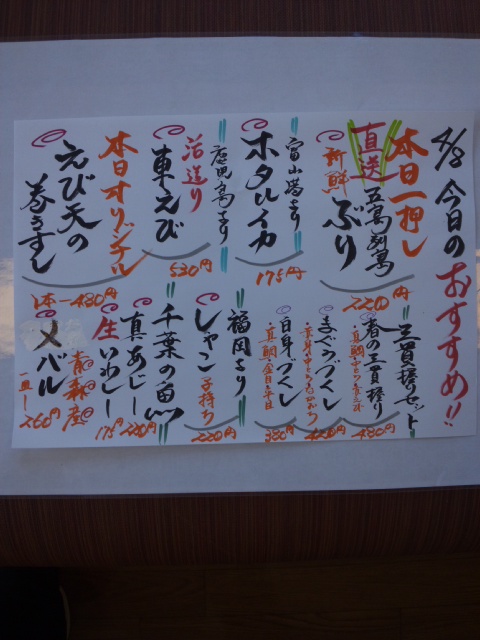 4/8 今日のおすすめ!!
本日一押し
直送 五島列島
新鮮 ぶり
220円
富山湾より
ホタルイカ
175円
鹿児島より
活〆送り
車えび
530円
本日オリジナル
えび天の
巻きずし
1本 480円
三貫握りセット
春の三貫握り
480円
まぐろづくし
480円
白身づくし
・真鯛・金目・平目
380円
福岡より
シャコ 子持ち
220円
千葉の
真あじ
280円
生いわし
175円
メバル
青森産
一皿
260円